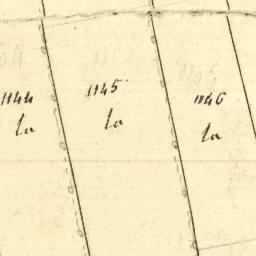 1144
la
1145
la
1146
la